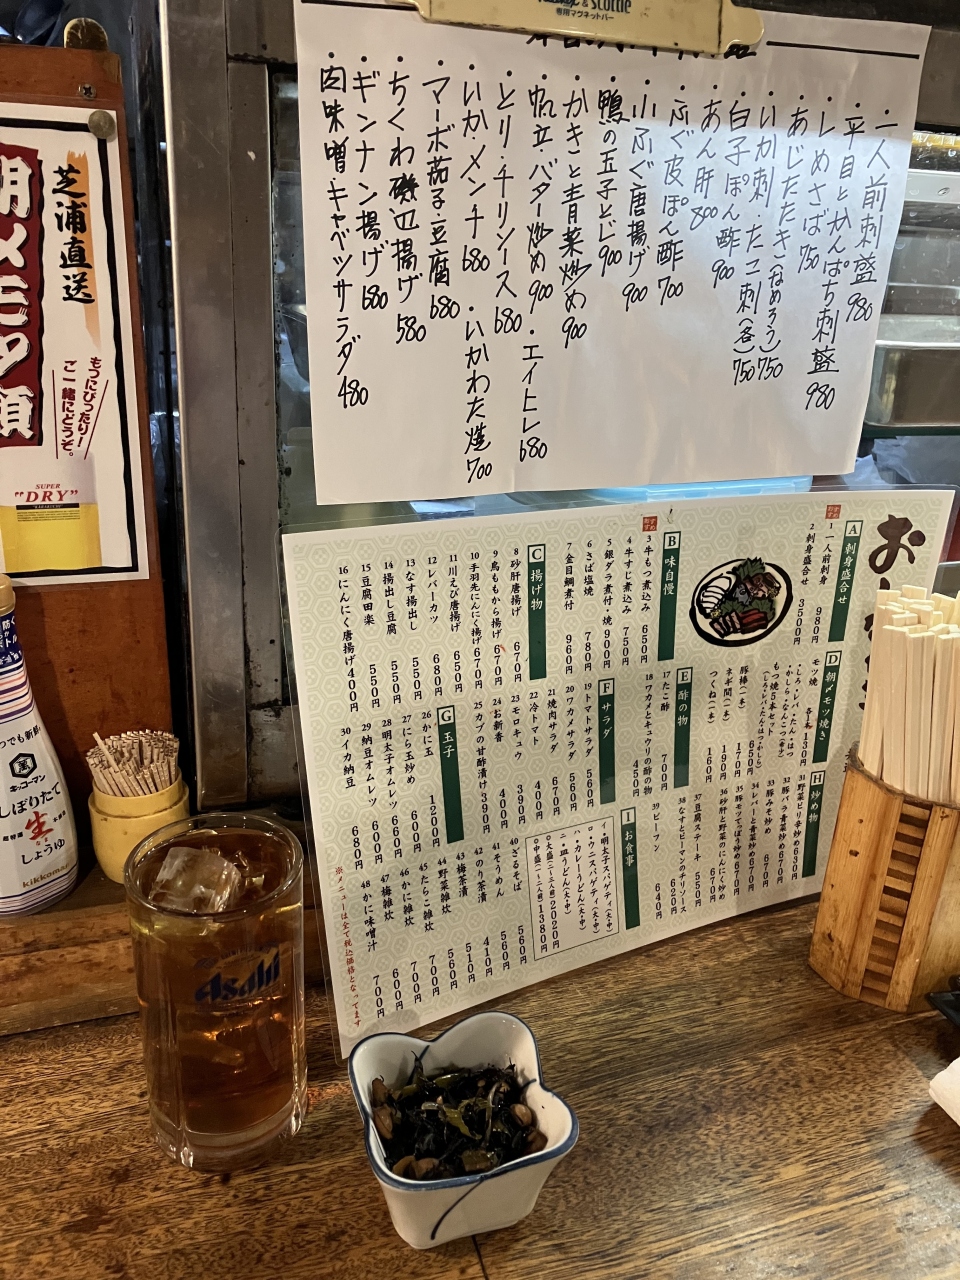 & scottie
専用マグネットバー
・一人前刺盛 980
・平目とかんぱち刺盛 980
・しめさば 750
・あじたたき(なめろう) 750
・いか刺・たこ刺(各) 750
・白子ぽん酢 900
・あん肝 800
・ふぐ皮ぽん酢 700
・小ふぐ唐揚げ 900
・鴨の玉子とじ 900
・かきと青菜炒め 900
・帆立・バター炒め 900
・エイヒレ 680
・とり・チリソース 680
・いか・メンチ 680
・いかわた焼 700
・マーボ茄子・豆腐 680
・ちくわ磯辺揚げ 580
・ギンナン揚げ 680
・肉味噌・キャベツサラダ 480
芝浦直送
もつにぴったり!
ご一緒にどうぞ。
SUPER
"DRY"
A 刺身盛合せ
おすすめ
1 一人前刺身 980円
2 刺身盛合せ 3500円
B 味自慢
おすすめ
3 牛もつ煮込み 650円
4 牛すじ煮込み 750円
5 銀ダラ煮付・焼 900円
6 さば塩焼 780円
7 金目鯛煮付 960円
C 揚げ物
8 砂肝唐揚げ 670円
9 鳥ももから揚げ 670円
10 手羽先にんにく揚げ 670円
11 川えび唐揚げ 650円
12 レバーカツ 680円
13 なす揚出し 550円
14 揚出し豆腐 550円
15 豆腐田楽 550円
16 にんにく唐揚げ 400円
D 朝〆モツ焼き
モツ焼 各1本 130円
・しろ・レバ・たん・はつ
・かしら・なんこつ(辛き)
もつ焼5本セット 650円
(しろ・レバ・たん・はつ・かしら)
豚棒(一本) 170円
ネギ間(一本) 190円
つくね(一本) 160円
E 酢の物
17 たこ酢 700円
18 ワカメとキュウリの酢の物 450円
F サラダ
19 トマトサラダ 560円
20 ワカメサラダ 560円
21 焼肉サラダ 670円
22 冷トマト 400円
23 モロキュウ 390円
24 お新香 400円
25 カブの甘酢漬け 390円
G 玉子
26 かに玉 1200円
27 にら玉炒め 660円
28 明太子オムレツ 660円
29 納豆オムレツ 600円
30 イカ納豆 680円
H 炒め物
31 野菜ピリ辛炒め 630円
32 豚バラ青菜炒め 670円
33 豚みそ炒め 670円
34 レバーと青菜炒め 670円
35 豚モツてっぽう炒め 670円
36 砂肝と野菜のにんにく炒め 670円
37 豆腐ステーキ 550円
38 なすとピーマンのチリソース 620円
39 ビーフン 640円
I お食事
イ・明太子スパゲティ(大・中)
ロ・ウニスパゲティ(大・中)
ハ・カレーうどん(大・中)
ニ・皿うどん(大・中)
○大盛(二〜三人前) 2020円
○中盛(一〜二人前) 1380円
40 ざるそば 560円
41 そうめん 560円
42 のり茶漬 410円
43 梅茶漬 510円
44 野菜雑炊 560円
45 たらこ雑炊 700円
46 かに雑炊 700円
47 梅雑炊 600円
48 かに味噌汁 700円
※メニューは全て税込価格となってます
いつでも新鮮
キッコーマン
しぼりたて
生
しょうゆ
kikkoman
Asahi